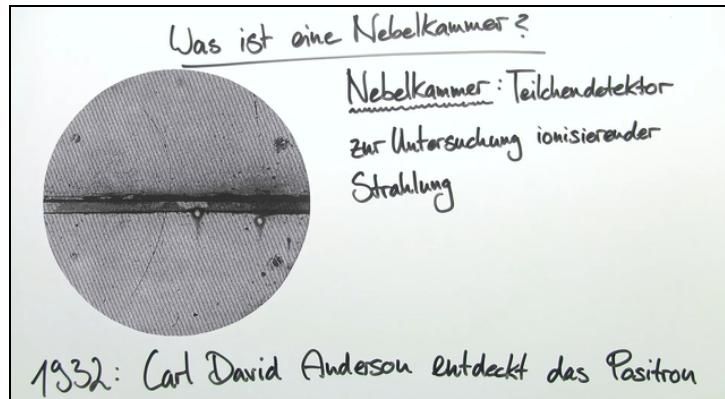 Was ist eine Nebelkammer?
Nebelkammer: Teilchendetektor
zur Untersuchung ionisierender
Strahlung
1932: Carl David Anderson entdeckt das Positron